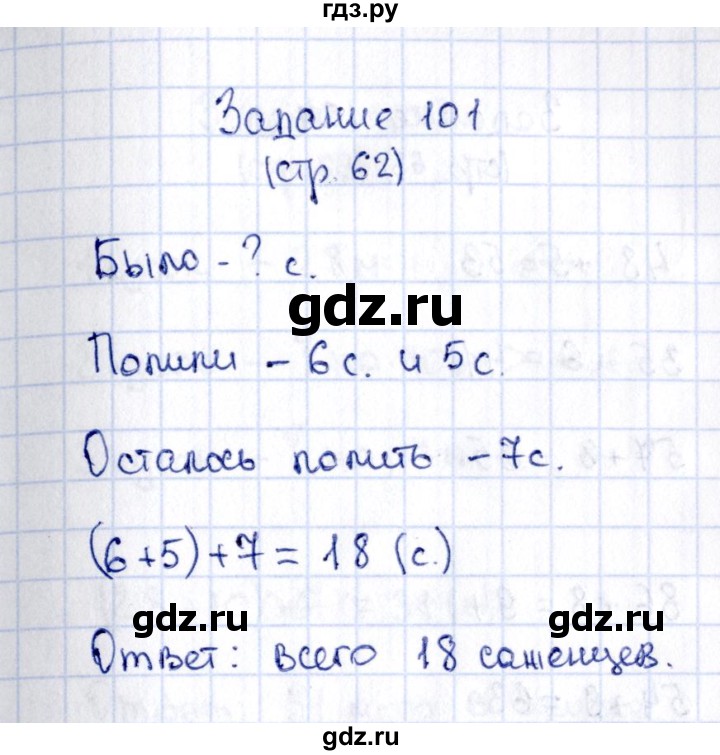 гдз.ру
Задание 101
(стр. 62)
Было - ? с.
gdz.ru
Полили - 6 с. и 5 с.
Осталось полить - 7 с.
(6 + 5) + 7 = 18 (с.)
gdz.ru gdz.ru
Ответ: всего 18 саженцев.
gdz.ru